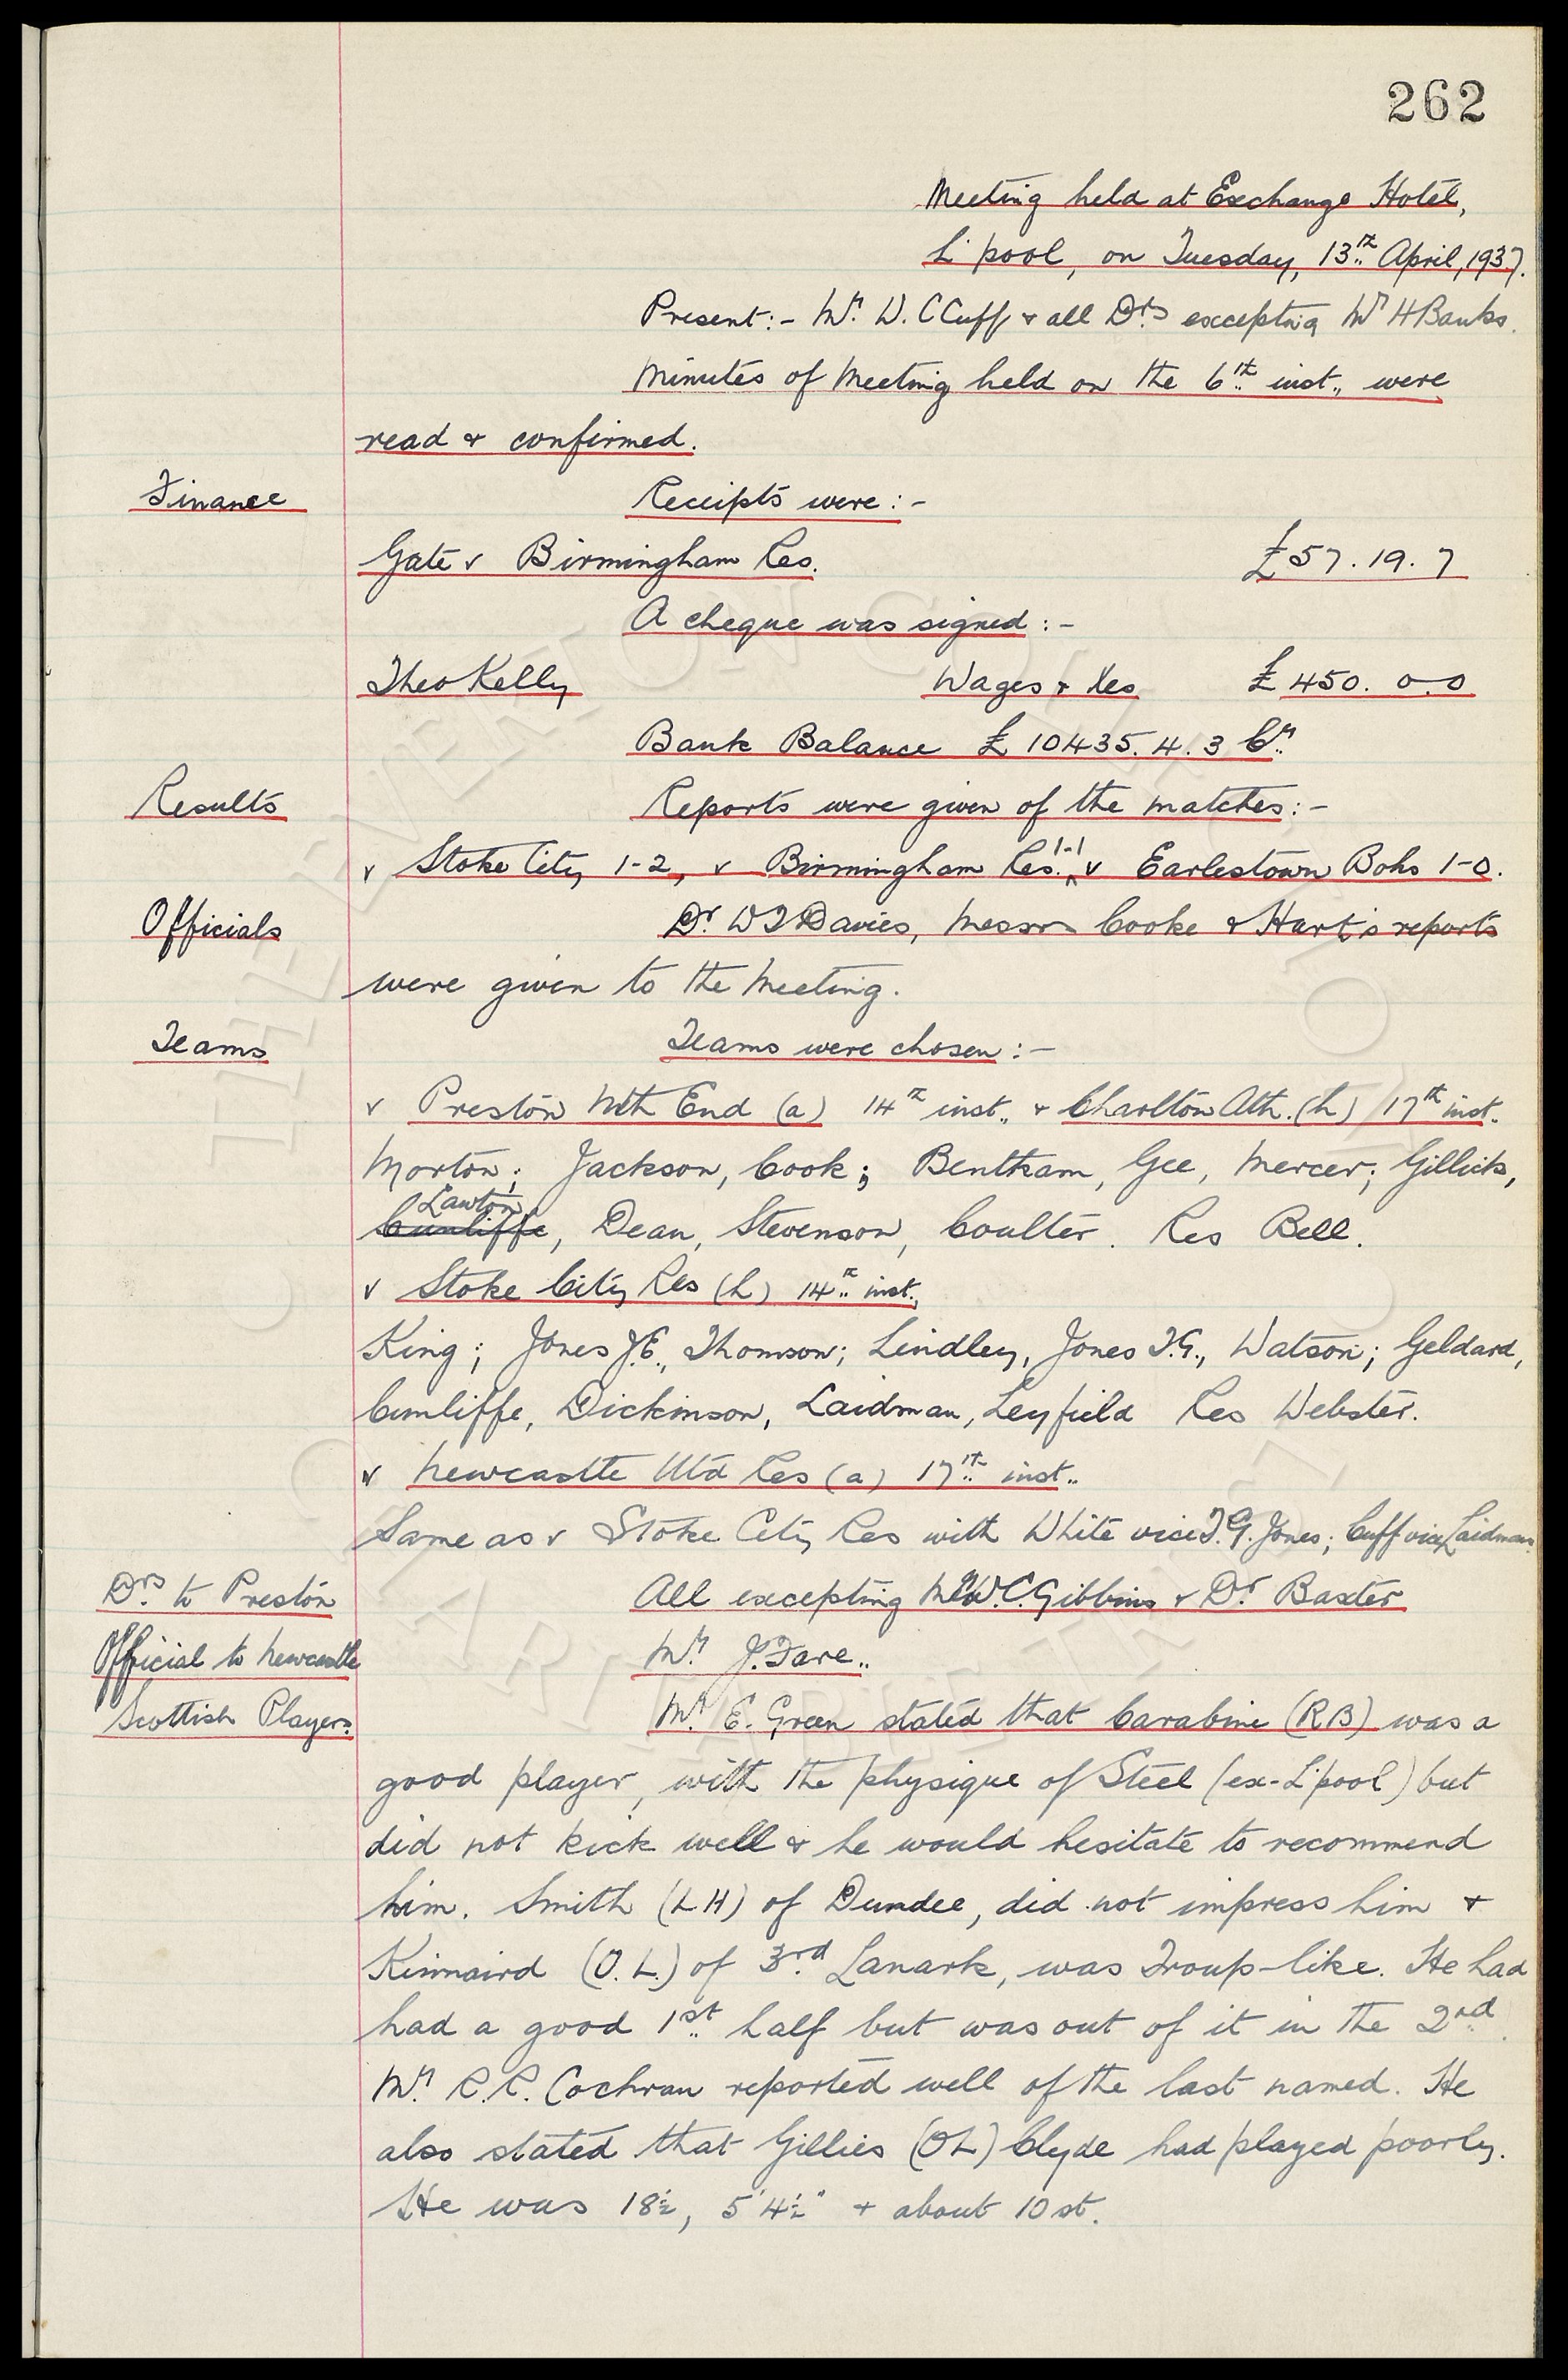 262
Meeting held at Exchange Hotel,
L'pool, on Tuesday, 13th April, 1937.
Present:- Mr. W. C Cuff & all Drs excepting Mr H Banks.
Minutes of Meeting held on the 6th inst., were
read & confirmed.
Finance Receipts were:-
Gate v Birmingham Res. £57.19.7
A cheque was signed:-
Theo Kelly Wages & Xes £450.0.0
Bank Balance £10435.4.3 Cr.
Results Reports were given of the matches:-
v Stoke City 1-2, v Birmingham Res. 1-1 v Earlestown Bohs 1-0.
Officials Dr. W J Davies, Messrs Cooke & Hart's reports
were given to the Meeting.
Teams Teams were chosen:-
v Preston Nth End (a) 14th inst., & Charlton Ath. (h) 17th inst.
Morton; Jackson, Cook; Bentham, Gee, Mercer; Gillick,
Lawton
Cunliffe, Dean, Stevenson, Coulter. Res Bell.
v Stoke City Res (h) 14th inst.,
King; Jones J.E., Thomson; Lindley, Jones T.G., Watson; Geldard,
Cunliffe, Dickinson, Laidman, Leyfield Res Webster.
v Newcastle Utd Res (a) 17th inst..
Same as v Stoke City Res with White vice T.G. Jones; Cuff vice Laidman.
Drs. to Preston All excepting Mr W.C. Gibbins & Dr. Baxter
Official to Newcastle Mr. J. Fare..
Scottish Players. Mr. E. Green stated that Carabine (RB) was a
good player, with the physique of Steel (ex-L'pool) but
did not kick well & he would hesitate to recommend
him. Smith (LH) of Dundee, did not impress him &
Kinnaird (O.L.) of 3rd Lanark, was Troup-like. He had
had a good 1st half but was out of it in the 2nd.
Mr. R.R. Cochran reported well of the last named. He
also stated that Gillies (OL) Clyde had played poorly.
He was 18½, 5'4½" & about 10 st.